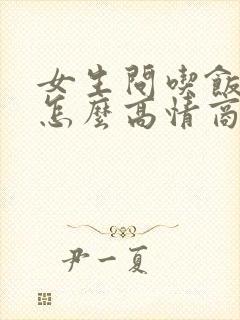 女生問喫飯
怎麼高情商
尹一夏